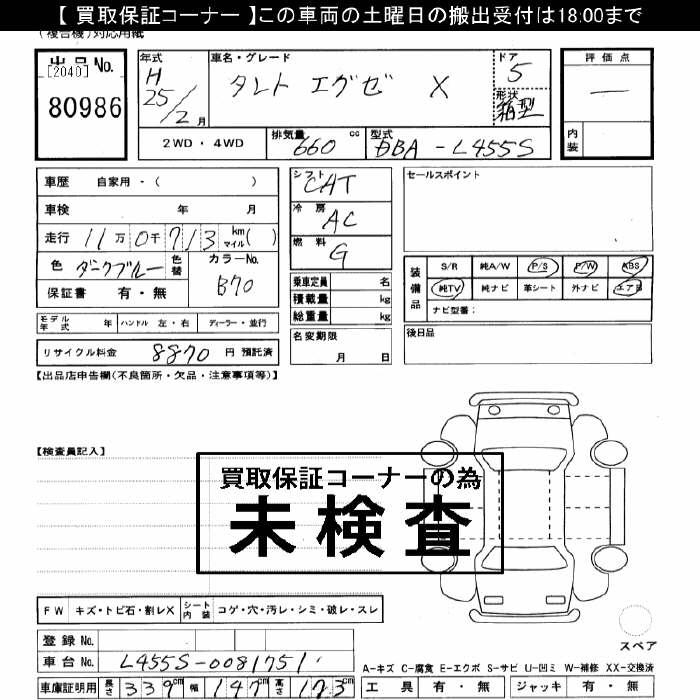 【 買取保証コーナー 】この車両の土曜日の搬出受付は18:00まで
(複合機)対応用紙
出品No.
[2040]
80986
年式
H
25/2月
車名・グレード
タント エグゼ X
ドア
5
形状
箱型
評価点
―
内装
2WD・4WD
排気量 660 cc
型式 DBA-L455S
車歴 自家用・( )
車検 年 月
走行 11万0千713 km マイル( )
色 ダークブルー
色替
カラーNo. B70
保証書 有・無
シフト CAT
冷房 AC
燃料 G
乗車定員 名
積載量 kg
総重量 kg
名変期限
月 日
セールスポイント
装備品
S/R 純A/W P/S P/W ABS
純TV 純ナビ 革シート 外ナビ エアB
ナビ型番:
後日品
モデル年式 年 ハンドル 左・右 ディーラー・並行
リサイクル料金 8870 円 預託済
【出品店申告欄(不良箇所・欠品・注意事項等)】
【検査員記入】
買取保証コーナーの為
未検査
FW キズ・トビ石・割レX シート内装 コゲ・穴・汚レ・シミ・破レ・スレ
スペア
登録No.
車台No. L455S-0081751
A-キズ C-腐食 E-エクボ S-サビ U-凹ミ W-補修 XX-交換済
車庫証明用 長さ 339cm 幅 147cm 高さ 173cm
工具 有・無 ジャッキ 有・無